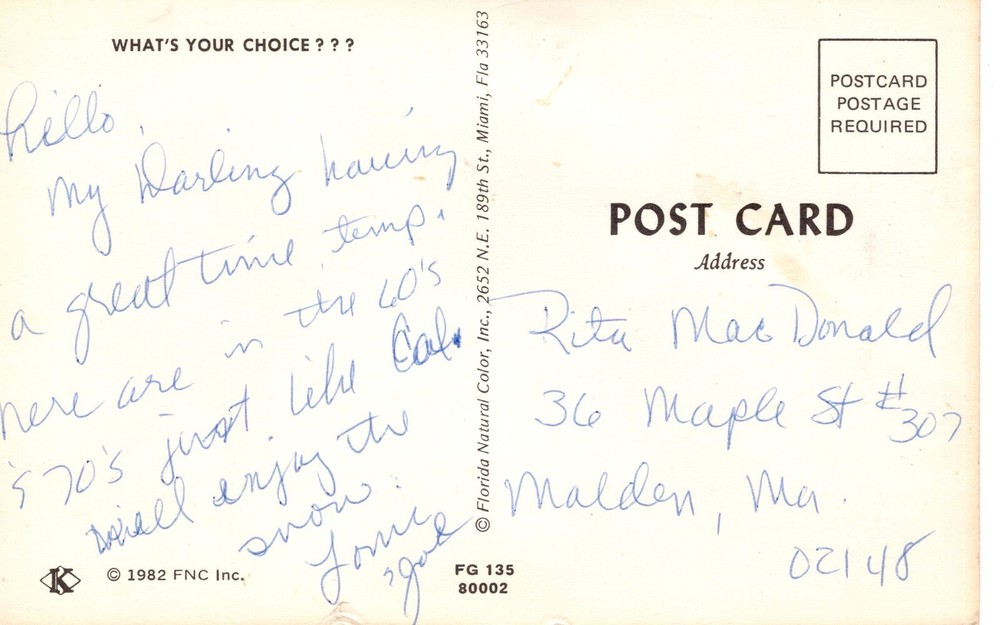 WHAT'S YOUR CHOICE ? ? ?
hello,
my Darling having
a great time temp.
here are in the 60's
's 70's just like Cal.
well enjoy the
snow.
Joe
K © 1982 FNC Inc.
FG 135
80002
© Florida Natural Color, Inc., 2652 N.E. 189th St., Miami, Fla 33163
POSTCARD
POSTAGE
REQUIRED
POST CARD
Address
Rita MacDonald
36 Maple St #307
Malden, Ma.
02148